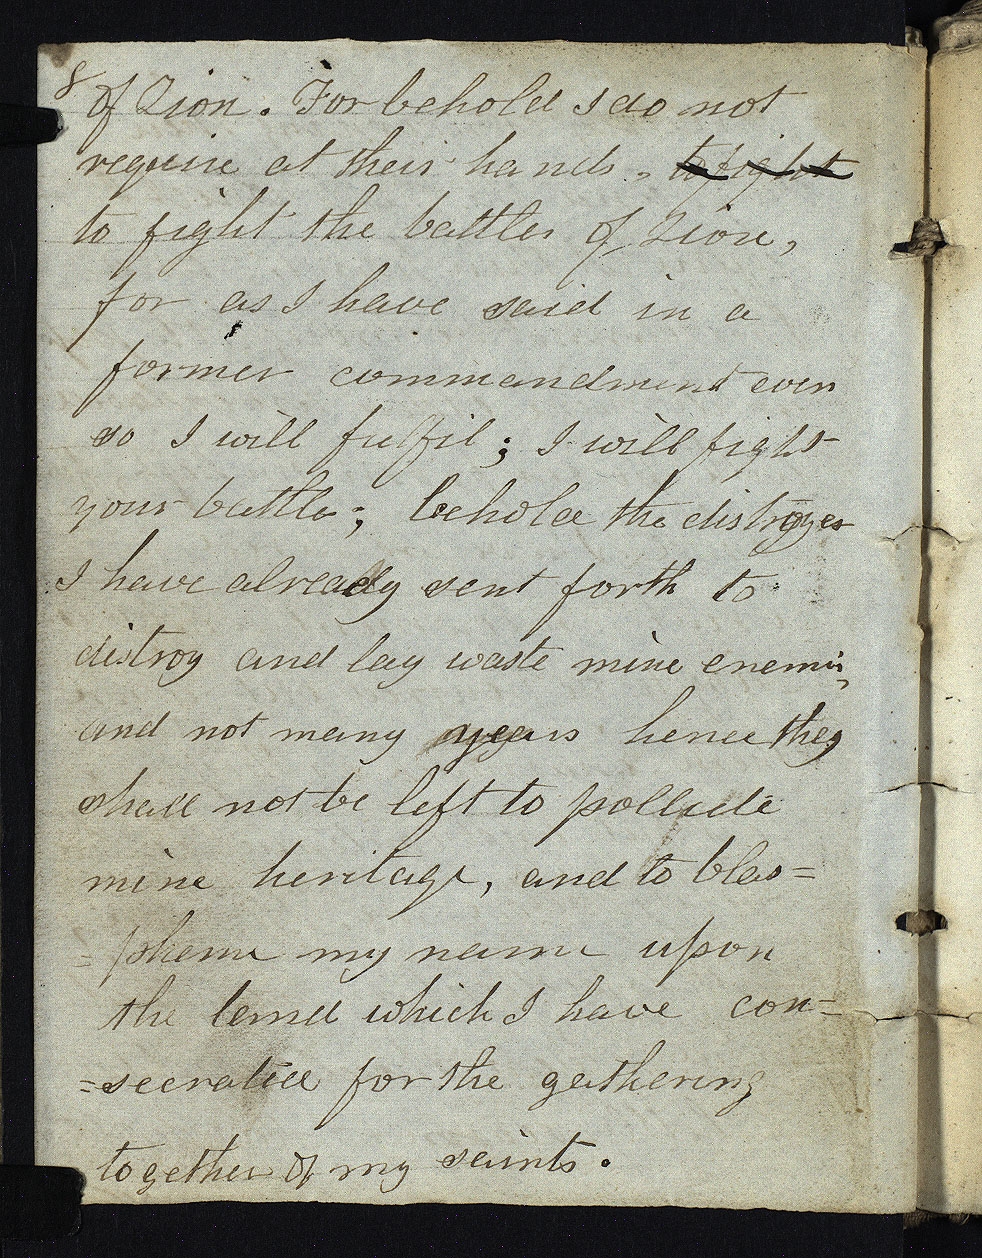 8
of Zion. For behold I do not
require at their hands, to fight
to fight the battles of Zion,
for as I have said in a
former commandment even
so I will fulfil; I will fight
your battle; behold the distroyer
I have already sent forth to
distroy and lay waste mine enemis,
and not many years hence they
shall not be left to pollute
mine heritage, and to blas=
=pheme my name upon
the land which I have con=
=secrated for the gathering
together of my saints.